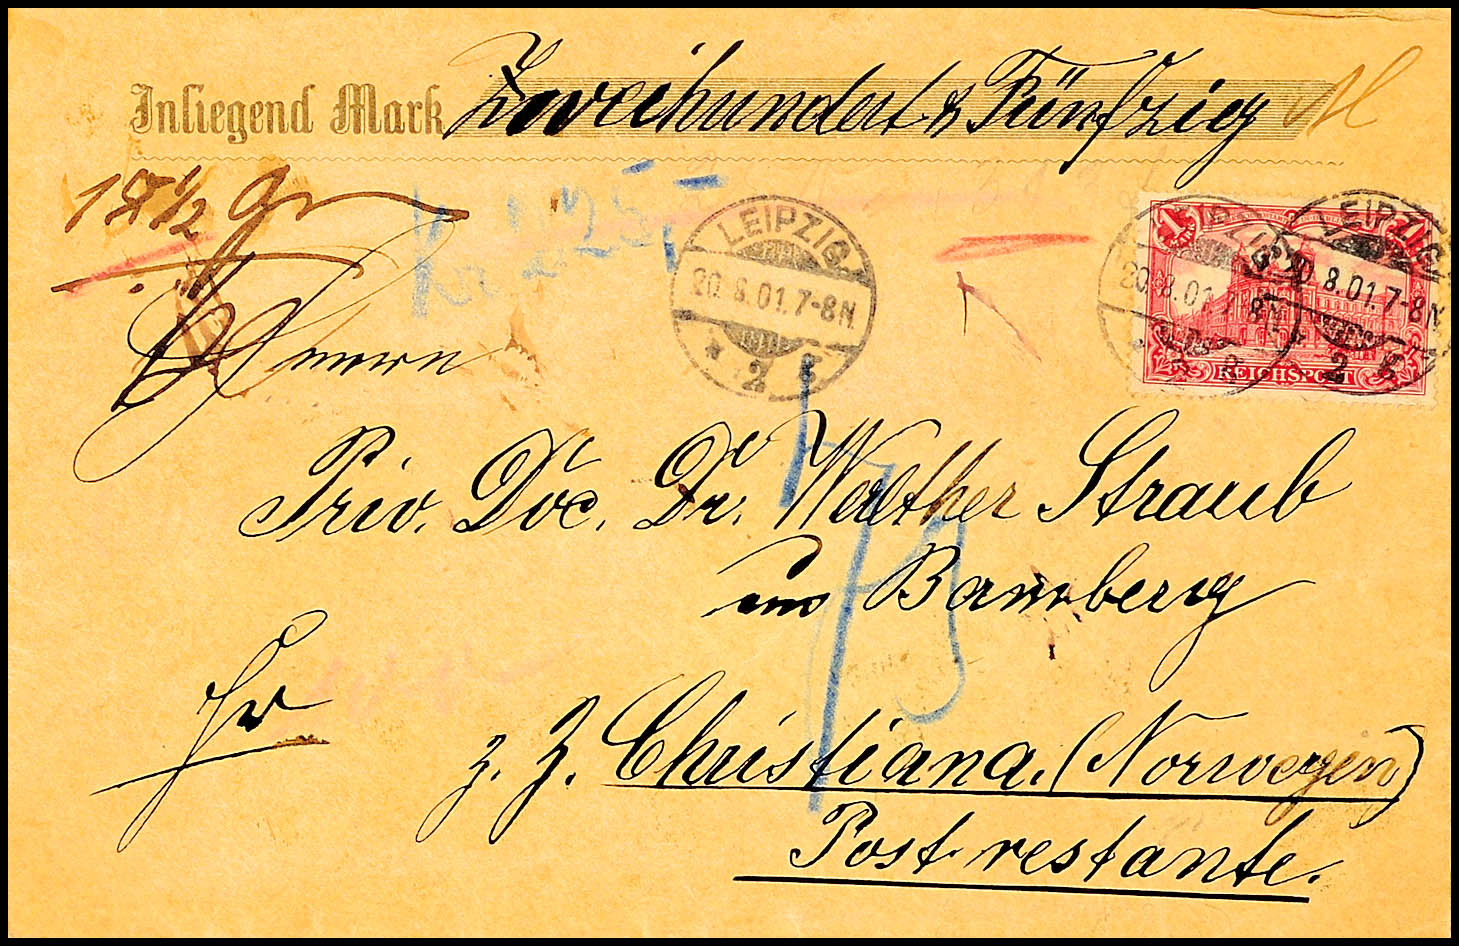 Inliegend Mark Zweihundert & Fünfzig M
½ gr
Kr 225
LEIPZIG
20.8.01.7-8N.
* 2
LEIPZIG
20.8.01.7-8N
LEIPZIG
20.8.01.7-8N
2
1
REICHSPOST
Herrn
Priv. Doc. Dr. Walther Straub
aus Bamberg
Fr
z. Z. Christiana. (Norwegen)
Post restante.